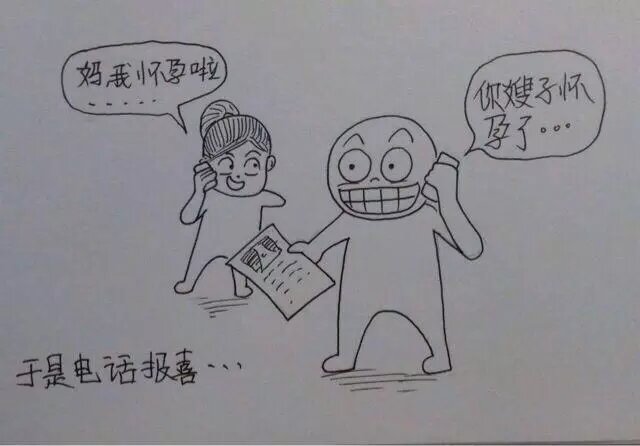 妈我怀孕啦
......
你嫂子怀
孕了...
于是电话报喜...